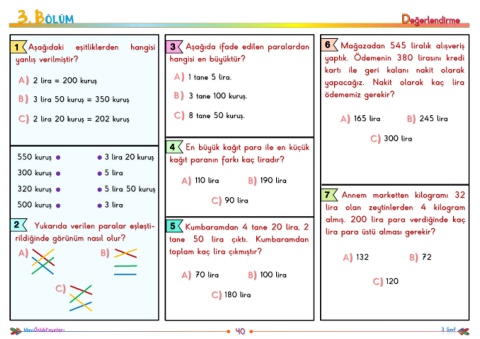 3. BÖLÜM
Değerlendirme
1 Aşağıdaki eşitliklerden hangisi
yanlış verilmiştir?
A) 2 lira = 200 kuruş
B) 3 lira 50 kuruş = 350 kuruş
C) 2 lira 20 kuruş = 202 kuruş
550 kuruş • • 3 lira 20 kuruş
300 kuruş • • 5 lira
320 kuruş • • 5 lira 50 kuruş
500 kuruş • • 3 lira
2 Yukarıda verilen paralar eşleşti-
rildiğinde görünüm nasıl olur?
A)
B)
C)
3 Aşağıda ifade edilen paralardan
hangisi en büyüktür?
A) 1 tane 5 lira.
B) 3 tane 100 kuruş.
C) 8 tane 50 kuruş.
4 En büyük kağıt para ile en küçük
kağıt paranın farkı kaç liradır?
A) 110 lira
B) 190 lira
C) 90 lira
5 Kumbaramdan 4 tane 20 lira, 2
tane 50 lira çıktı. Kumbaramdan
toplam kaç lira çıkmıştır?
A) 70 lira
B) 100 lira
C) 180 lira
6 Mağazadan 545 liralık alışveriş
yaptık. Ödemenin 380 lirasını kredi
kartı ile geri kalanı nakit olarak
yapacağız. Nakit olarak kaç lira
ödememiz gerekir?
A) 165 lira
B) 245 lira
C) 300 lira
7 Annem marketten kilogramı 32
lira olan zeytinlerden 4 kilogram
almış. 200 lira para verdiğinde kaç
lira para üstü alması gerekir?
A) 132
B) 72
C) 120
40
3. Sınıf